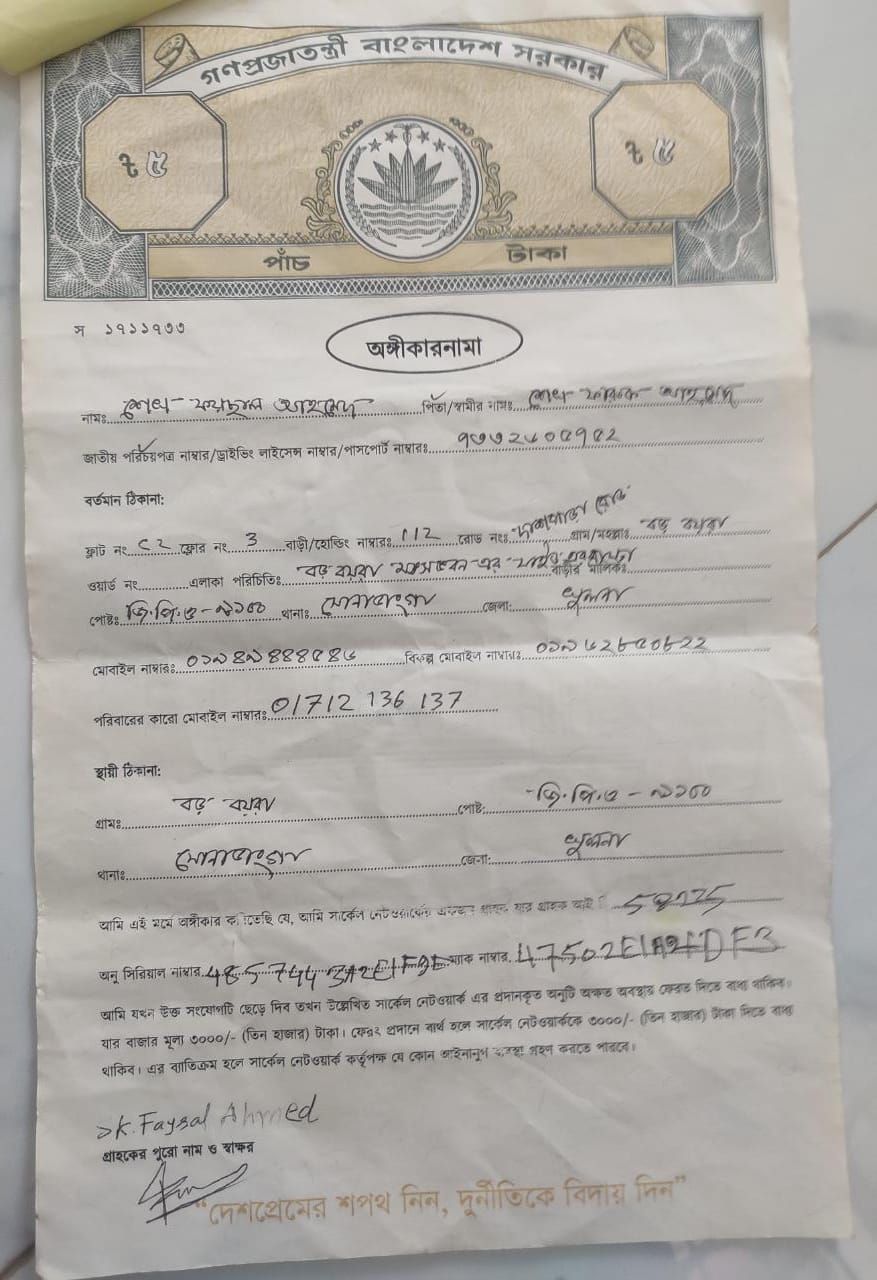 গণপ্রজাতন্ত্রী বাংলাদেশ সরকার
৳ ৫ ৳ ৫
পাঁচ টাকা
স ১৭১১৭৩৩
অঙ্গীকারনামা
নামঃ শেখ ফয়ছাল আহমেদ পিতা/স্বামীর নামঃ শেখ ফারুক আহমেদ
জাতীয় পরিচয়পত্র নাম্বার/ড্রাইভিং লাইসেন্স নাম্বার/পাসপোর্ট নাম্বারঃ
বর্তমান ঠিকানা:
ফ্লাট নং C2 ফ্লোর নং 3 বাড়ী/হোল্ডিং নাম্বারঃ 112 রোড নংঃ রোড গ্রাম/মহল্লাঃ বড় বয়রা
ওয়ার্ড নং এলাকা পরিচিতিঃ বড় বয়রা এর বাড়ীর মালিকঃ
পোষ্টঃ জি.পি.ও - ৯১০০ থানাঃ সোনাডাংগা জেলা: খুলনা
মোবাইল নাম্বারঃ বিকল্প মোবাইল নাম্বারঃ
পরিবারের কারো মোবাইল নাম্বারঃ 01712 136 137
স্থায়ী ঠিকানা:
গ্রামঃ বড় বয়রা পোষ্ট: জি.পি.ও - ৯১০০
থানাঃ সোনাডাংগা জেলা: খুলনা
আমি এই মর্মে অঙ্গীকার করিতেছি যে, আমি সার্কেল নেটওয়ার্কের একজন গ্রাহক যার গ্রাহক আইডি
অনু সিরিয়াল নাম্বার ম্যাক নাম্বার
আমি যখন উক্ত সংযোগটি ছেড়ে দিব তখন উল্লেখিত সার্কেল নেটওয়ার্ক এর প্রদানকৃত অনুটি অক্ষত অবস্থায় ফেরত দিতে বাধ্য থাকিব।
যার বাজার মূল্য ৩০০০/- (তিন হাজার) টাকা। ফেরৎ প্রদানে ব্যর্থ হলে সার্কেল নেটওয়ার্ককে ৩০০০/- (তিন হাজার) টাকা দিতে বাধ্য
থাকিব। এর ব্যতিক্রম হলে সার্কেল নেটওয়ার্ক কর্তৃপক্ষ যে কোন আইনানুগ ব্যবস্থা গ্রহণ করতে পারবে।
SK. Faysal Ahmed
গ্রাহকের পুরো নাম ও স্বাক্ষর
"দেশপ্রেমের শপথ নিন, দুর্নীতিকে বিদায় দিন"